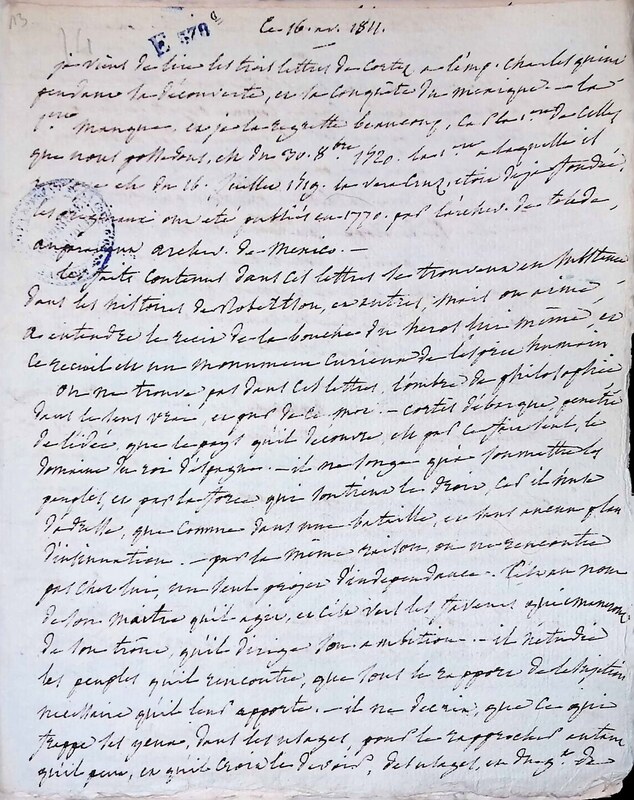 ce 16. av. 1811.
E 379 a
je viens de lire les trois lettres de Cortez a l'emp. Charles quint
pendant la découverte, et la Conquête du mexique. — la
1ere manque, et je la regrette beaucoup, la plus de celles
que nous possedons, est du 30. 8bre 1520. la 1ere a laquelle il
est du 16. Juillet 1519. la veracruz, etoit deja fondée.
les originaux ont eté publiés en 1770. par l'archev. de tolede,
auparavant archev. de Mexico. —
les faits contenus dans ces lettres se trouvent en substance
dans les histoires de Robertson, et autres, mais on aime
a entendre le recit de la bouche du heros lui même, et
ce recueil est un monument curieux de l'esprit humain
On ne trouve pas dans ces lettres, l'ombre de philosophie
dans le sens vrai, et pur de ce mot. — Cortès débarque penetré
de l'idée, que le pays qu'il decouvre, est par ce fait seul, le
domaine du roi d'espagne. — il ne songe qu'a soumettre les
peuples, et par la force que soutient le droit, car il n'use
d'adresse, que comme dans une bataille, et sans aucun plan
d'insinuation. — par la même raison, on ne rencontre
pas chez lui, un seul projet d'independance. C'est au nom
de son maitre qu'il agit, et c'est vers les faveurs qui emanent
de son trône, qu'il dirige son ambition. — il n'etudie
les peuples qu'il rencontre, que sous le rapport de la sujetion
necessaire qu'il leur apporte. — il ne decrit, que ce qui
frappe ses yeux, dans les usages, pour le rapprocher autant
qu'il peut, et qu'il croit le devoir, des usages, et du de